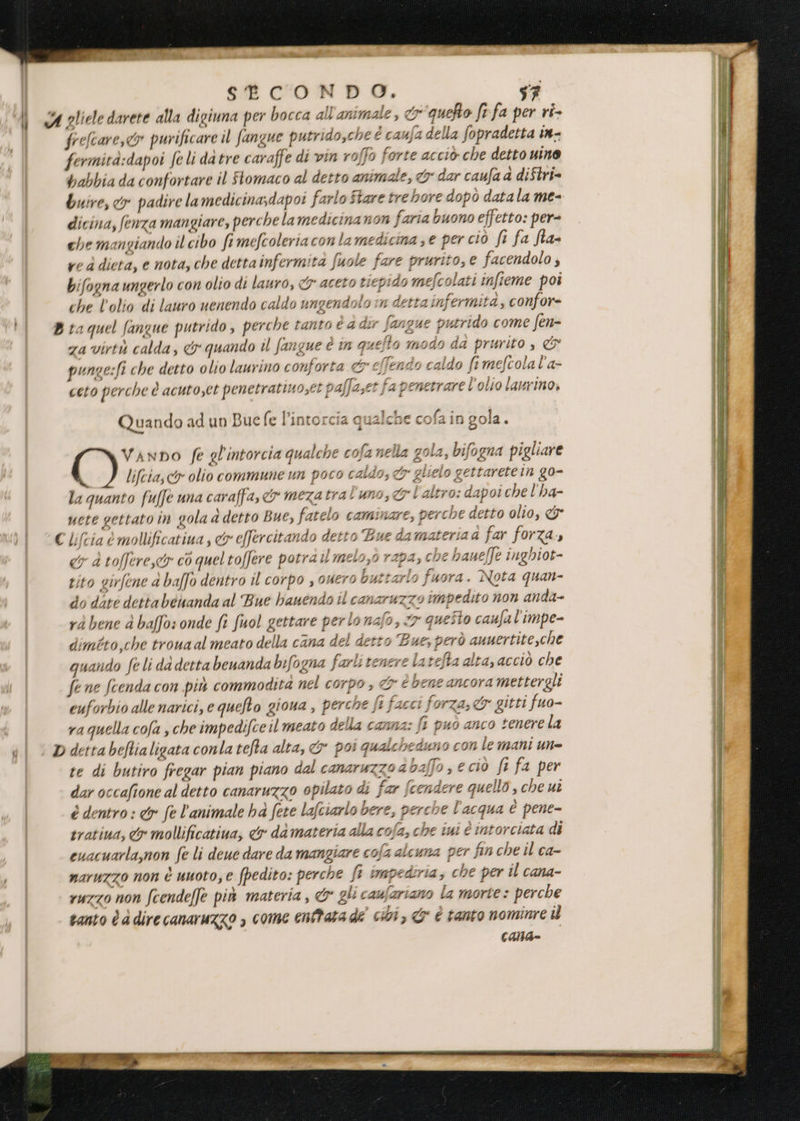 SECONDO. 57
A gliele darete alla digiuna per bocca all'animale, & questo si fa per ri-
frescare, & purificare il sangue putrido, che è causa della sopradetta in-
fermità: dapoi se li dà tre caraffe di vin rosso forte acciò che detto uino
habbia da confortare il stomaco al detto animale, & dar causa à distri-
buire, & padire la medicina, dapoi farlo stare tre hore dopò data la me-
dicina, senza mangiare, perche la medicina non faria buono effetto: per-
che mangiando il cibo si mescoleria con la medicina, e per ciò si fa sta-
re à dieta, e nota, che detta infermità suole fare prurito, e facendolo,
bisogna ungerlo con olio di lauro, & aceto tiepido mescolati insieme poi
che l'olio di lauro uenendo caldo ungendolo in detta infermità, confor-
B ta quel sangue putrido, perche tanto è à dir sangue putrido come sen-
za virtù calda, & quando il sangue è in questo modo dà prurito, &
punge: si che detto olio laurino conforta & essendo caldo si mescola l'a-
ceto perche è acuto, et penetratiuo, et passa, et fa penetrare l'olio laurino.
Quando ad un Bue se l'intorcia qualche cosa in gola.
QVANDO se gl'intorcia qualche cosa nella gola, bisogna pigliare
liscia, & olio commune un poco caldo, & glielo gettarete in go-
la quanto fusse una caraffa, & meza tra l'uno, & l'altro: dapoi che l'ha-
uete gettato in gola à detto Bue, fatelo caminare, perche detto olio, &
C liscia è mollificatiua, & essercitando detto Bue da materia à far forza,
& à tossere, & cō quel tossere potrà il melo, ò rapa, che hauesse inghiot-
tito girsene à basso dentro il corpo, ouero buttarlo fuora. Nota quan-
do date detta beuanda al Bue hauendo il canaruzzo impedito non anda-
rà bene à basso: onde si suol gettare per lo naso, & questo causa l'impe-
dimēto, che troua al meato della cana del detto Bue, però auuertite, che
quando se li dà detta beuanda bisogna farli tenere la testa alta, acciò che
se ne scenda con più commodità nel corpo, & è bene ancora mettergli
euforbio alle narici, e questo gioua, perche si facci forza, & gitti fuo-
ra quella cosa, che impedisce il meato della canna: si può anco tenere la
D detta bestia ligata con la testa alta, & poi qualcheduno con le mani un-
te di butiro fregar pian piano dal canaruzzo à basso, e ciò si fa per
dar occasione al detto canaruzzo opilato di far scendere quello, che ui
è dentro: & se l'animale hà sete lasciarlo bere, perche l'acqua è pene-
tratiua, & mollificatiua, & dà materia alla cosa, che iui è intorciata di
euacuarla, non se li deue dare da mangiare cosa alcuna per fin che il ca-
naruzzo non è uuoto, e spedito: perche si impediria, che per il cana-
ruzzo non scendesse più materia, & gli causariano la morte: perche
tanto è à dire canaruzzo, come entrata de' cibi, & è tanto nominre il
cana-